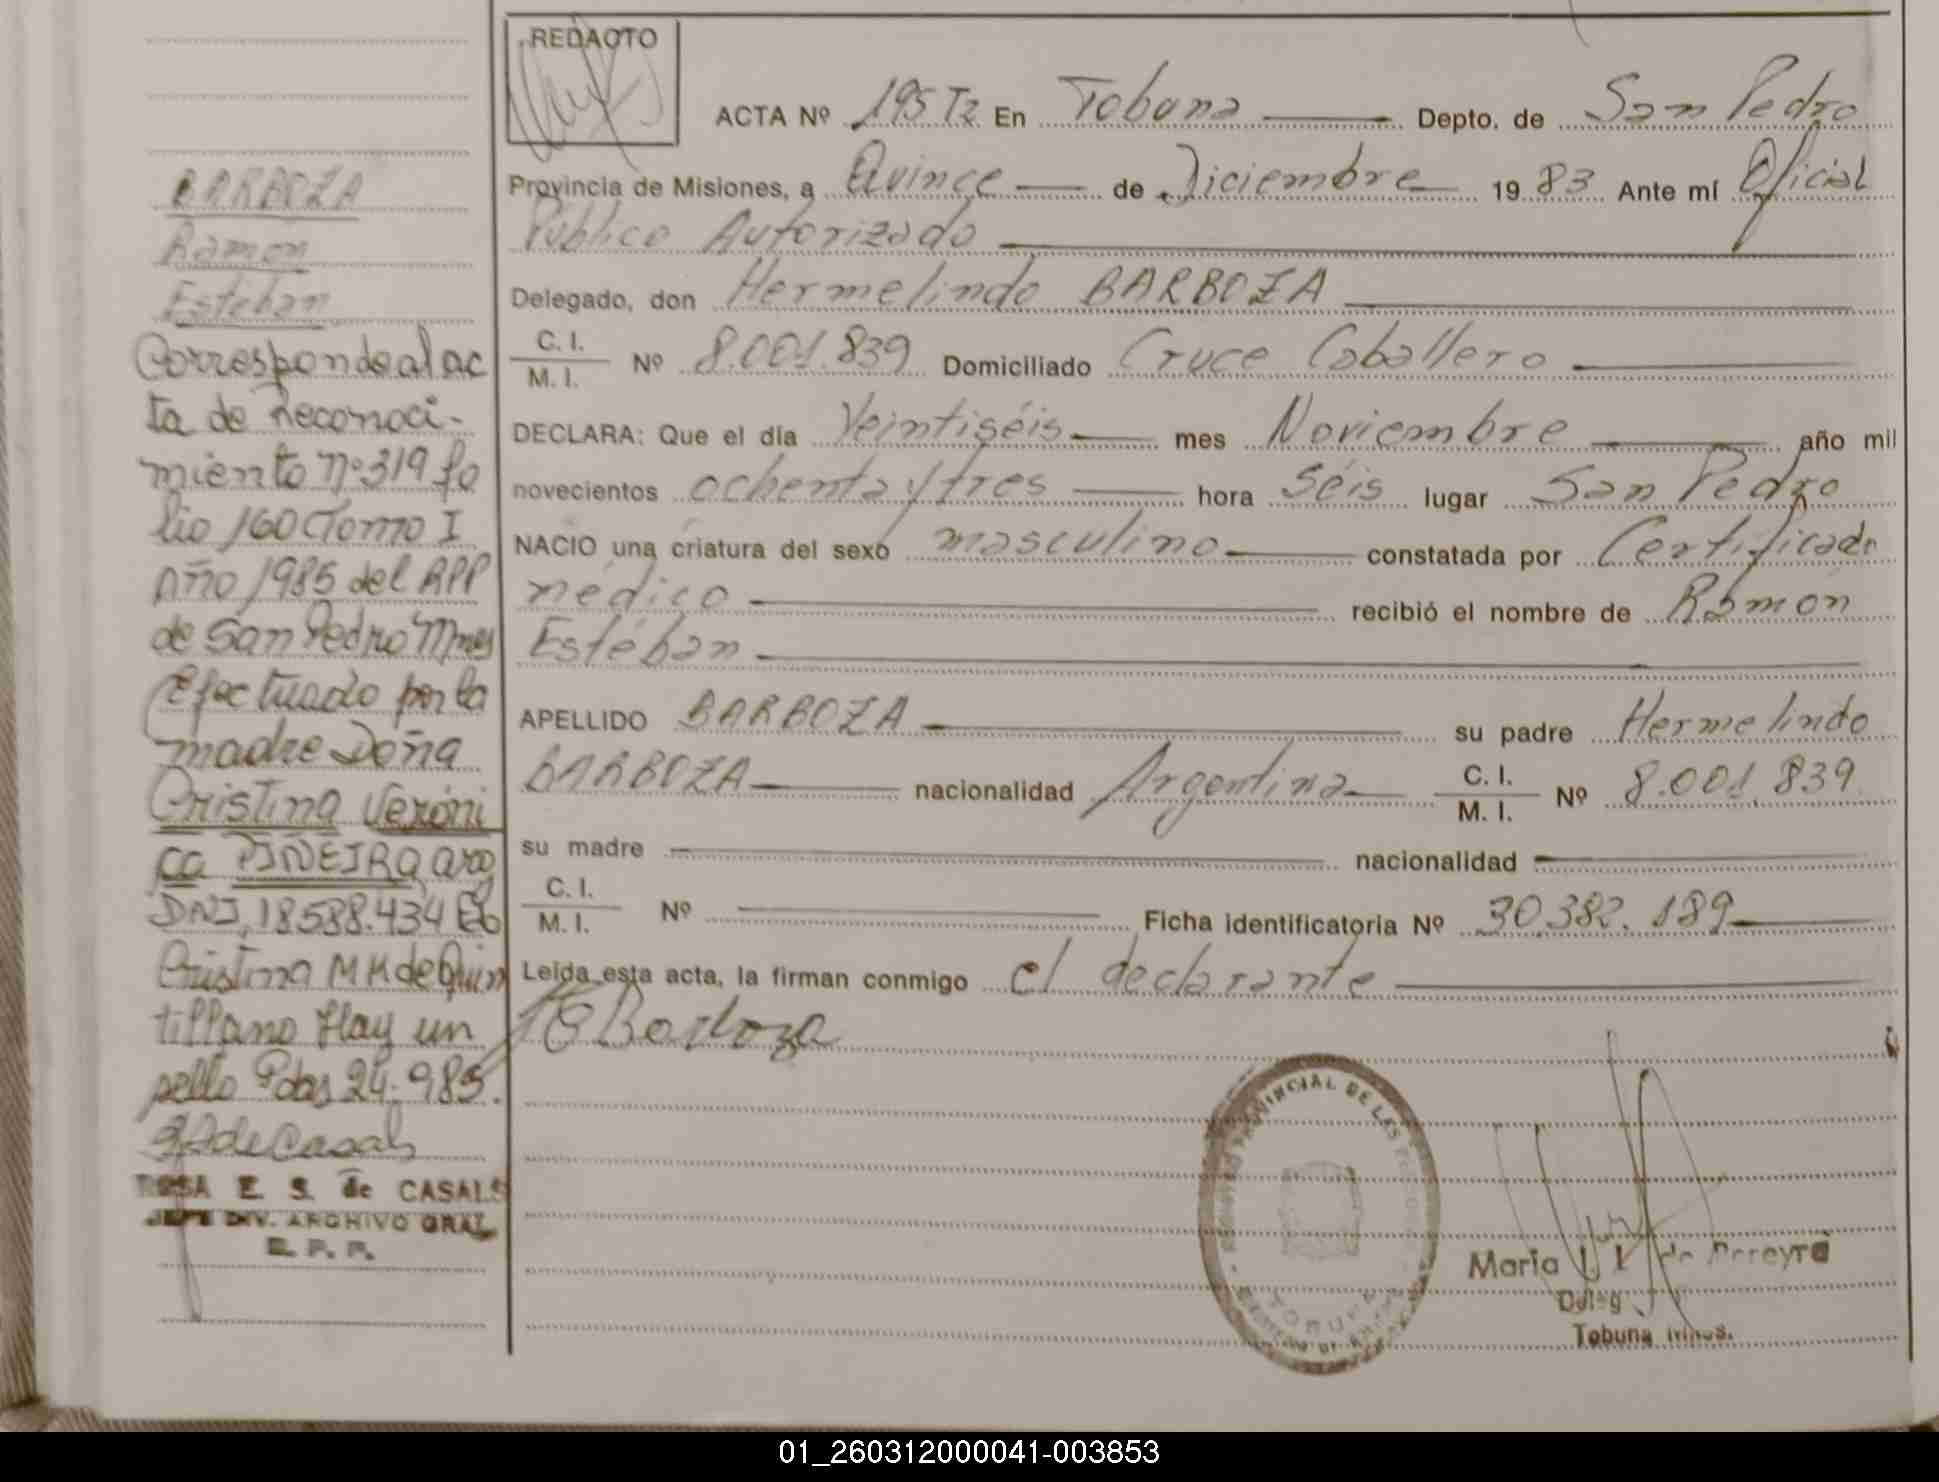 REDACTO
ACTA Nº 195 Tz En Tobuna Depto. de San Pedro
Provincia de Misiones, a Quince de Diciembre 19 83 Ante mí Oficial
Público Autorizado
Delegado, don Hermelindo BARBOZA
C. I.
M. I. Nº 8.001.839 Domiciliado Cruce Caballero
DECLARA: Que el día Veintiséis mes Noviembre año mil
novecientos ochenta y tres hora Séis lugar San Pedro
NACIO una criatura del sexo masculino constatada por Certificado
médico recibió el nombre de Ramón
Estéban
APELLIDO BARBOZA su padre Hermelindo
BARBOZA nacionalidad Argentina C. I.
M. I. Nº 8.001.839
su madre nacionalidad
C. I.
M. I. Nº Ficha identificatoria Nº 30.382.189
Leída esta acta, la firman conmigo el declarante
Barboza
BARBOZA
Ramón
Estéban
Corresponde al ac
ta de Reconoci-
miento Nº 319 fo
lio 160 Tomo I
Año 1985 del RPP
de San Pedro Mnes
Efectuado por la
madre Doña
Cristina Veróni
ca PIÑEIRA arg
DNI, 18.588.434
Cristina M M de Quin
tillano Hay un
sello Pdas 24.985.
de Casals
ROSA E. S. de CASALS
JEFE DIV. ARCHIVO GRAL
R. P. P.
REGISTRO PROVINCIAL DE LAS PERSONAS
TOBUNA
Maria de Pereyra
Deleg
Tobuna Mnes.
01_260312000041-003853